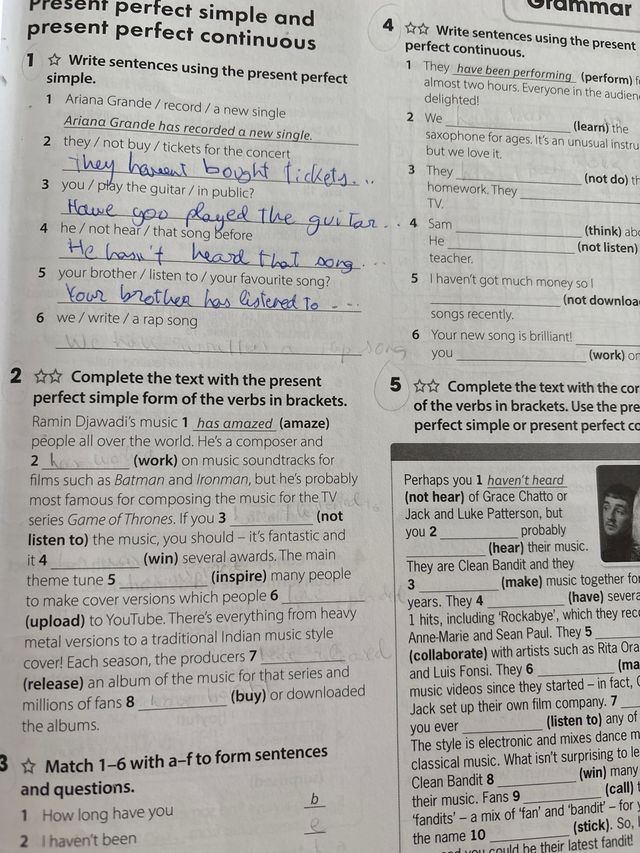 Present perfect simple and
present perfect continuous
1 ☆ Write sentences using the present perfect
simple.
1 Ariana Grande / record / a new single
Ariana Grande has recorded a new single.
2 they / not buy / tickets for the concert
They havent bought tickets...
3 you / play the guitar / in public?
Have you played the guitar...
4 he / not hear / that song before
He hasn't heard that song...
5 your brother / listen to / your favourite song?
Your brother has listened to ...
6 we / write / a rap song
We have a rap song
2 ☆☆ Complete the text with the present
perfect simple form of the verbs in brackets.
Ramin Djawadi's music 1 has amazed (amaze)
people all over the world. He's a composer and
2 (work) on music soundtracks for
films such as Batman and Ironman, but he's probably
most famous for composing the music for the TV
series Game of Thrones. If you 3 (not
listen to) the music, you should – it's fantastic and
it 4 (win) several awards. The main
theme tune 5 (inspire) many people
to make cover versions which people 6
(upload) to YouTube. There's everything from heavy
metal versions to a traditional Indian music style
cover! Each season, the producers 7
(release) an album of the music for that series and
millions of fans 8 (buy) or downloaded
the albums.
3 ☆ Match 1–6 with a–f to form sentences
and questions.
1 How long have you b
2 I haven't been e
Grammar
4 ☆☆ Write sentences using the present
perfect continuous.
1 They have been performing (perform)
almost two hours. Everyone in the
delighted!
2 We (learn) the
saxophone for ages. It's an unusual
but we love it.
3 They (not do)
homework. They
TV.
4 Sam (think)
He (not listen)
teacher.
5 I haven't got much money so I
(not
songs recently.
6 Your new song is brilliant!
you (work)
5 ☆☆ Complete the text with the
of the verbs in brackets. Use the
perfect simple or present perfect
Perhaps you 1 haven't heard
(not hear) of Grace Chatto or
Jack and Luke Patterson, but
you 2 probably
(hear) their music.
They are Clean Bandit and they
3 (make) music together
years. They 4 (have)
1 hits, including 'Rockabye', which they
Anne-Marie and Sean Paul. They 5
(collaborate) with artists such as Rita Ora
and Luis Fonsi. They 6
music videos since they started – in fact,
Jack set up their own film company. 7
you ever (listen to) any of
The style is electronic and mixes dance
classical music. What isn't surprising to
Clean Bandit 8 (win) many
their music. Fans 9 (call)
'fandits' – a mix of 'fan' and 'bandit' – for
the name 10 (stick). So,
you could be their latest fandit!